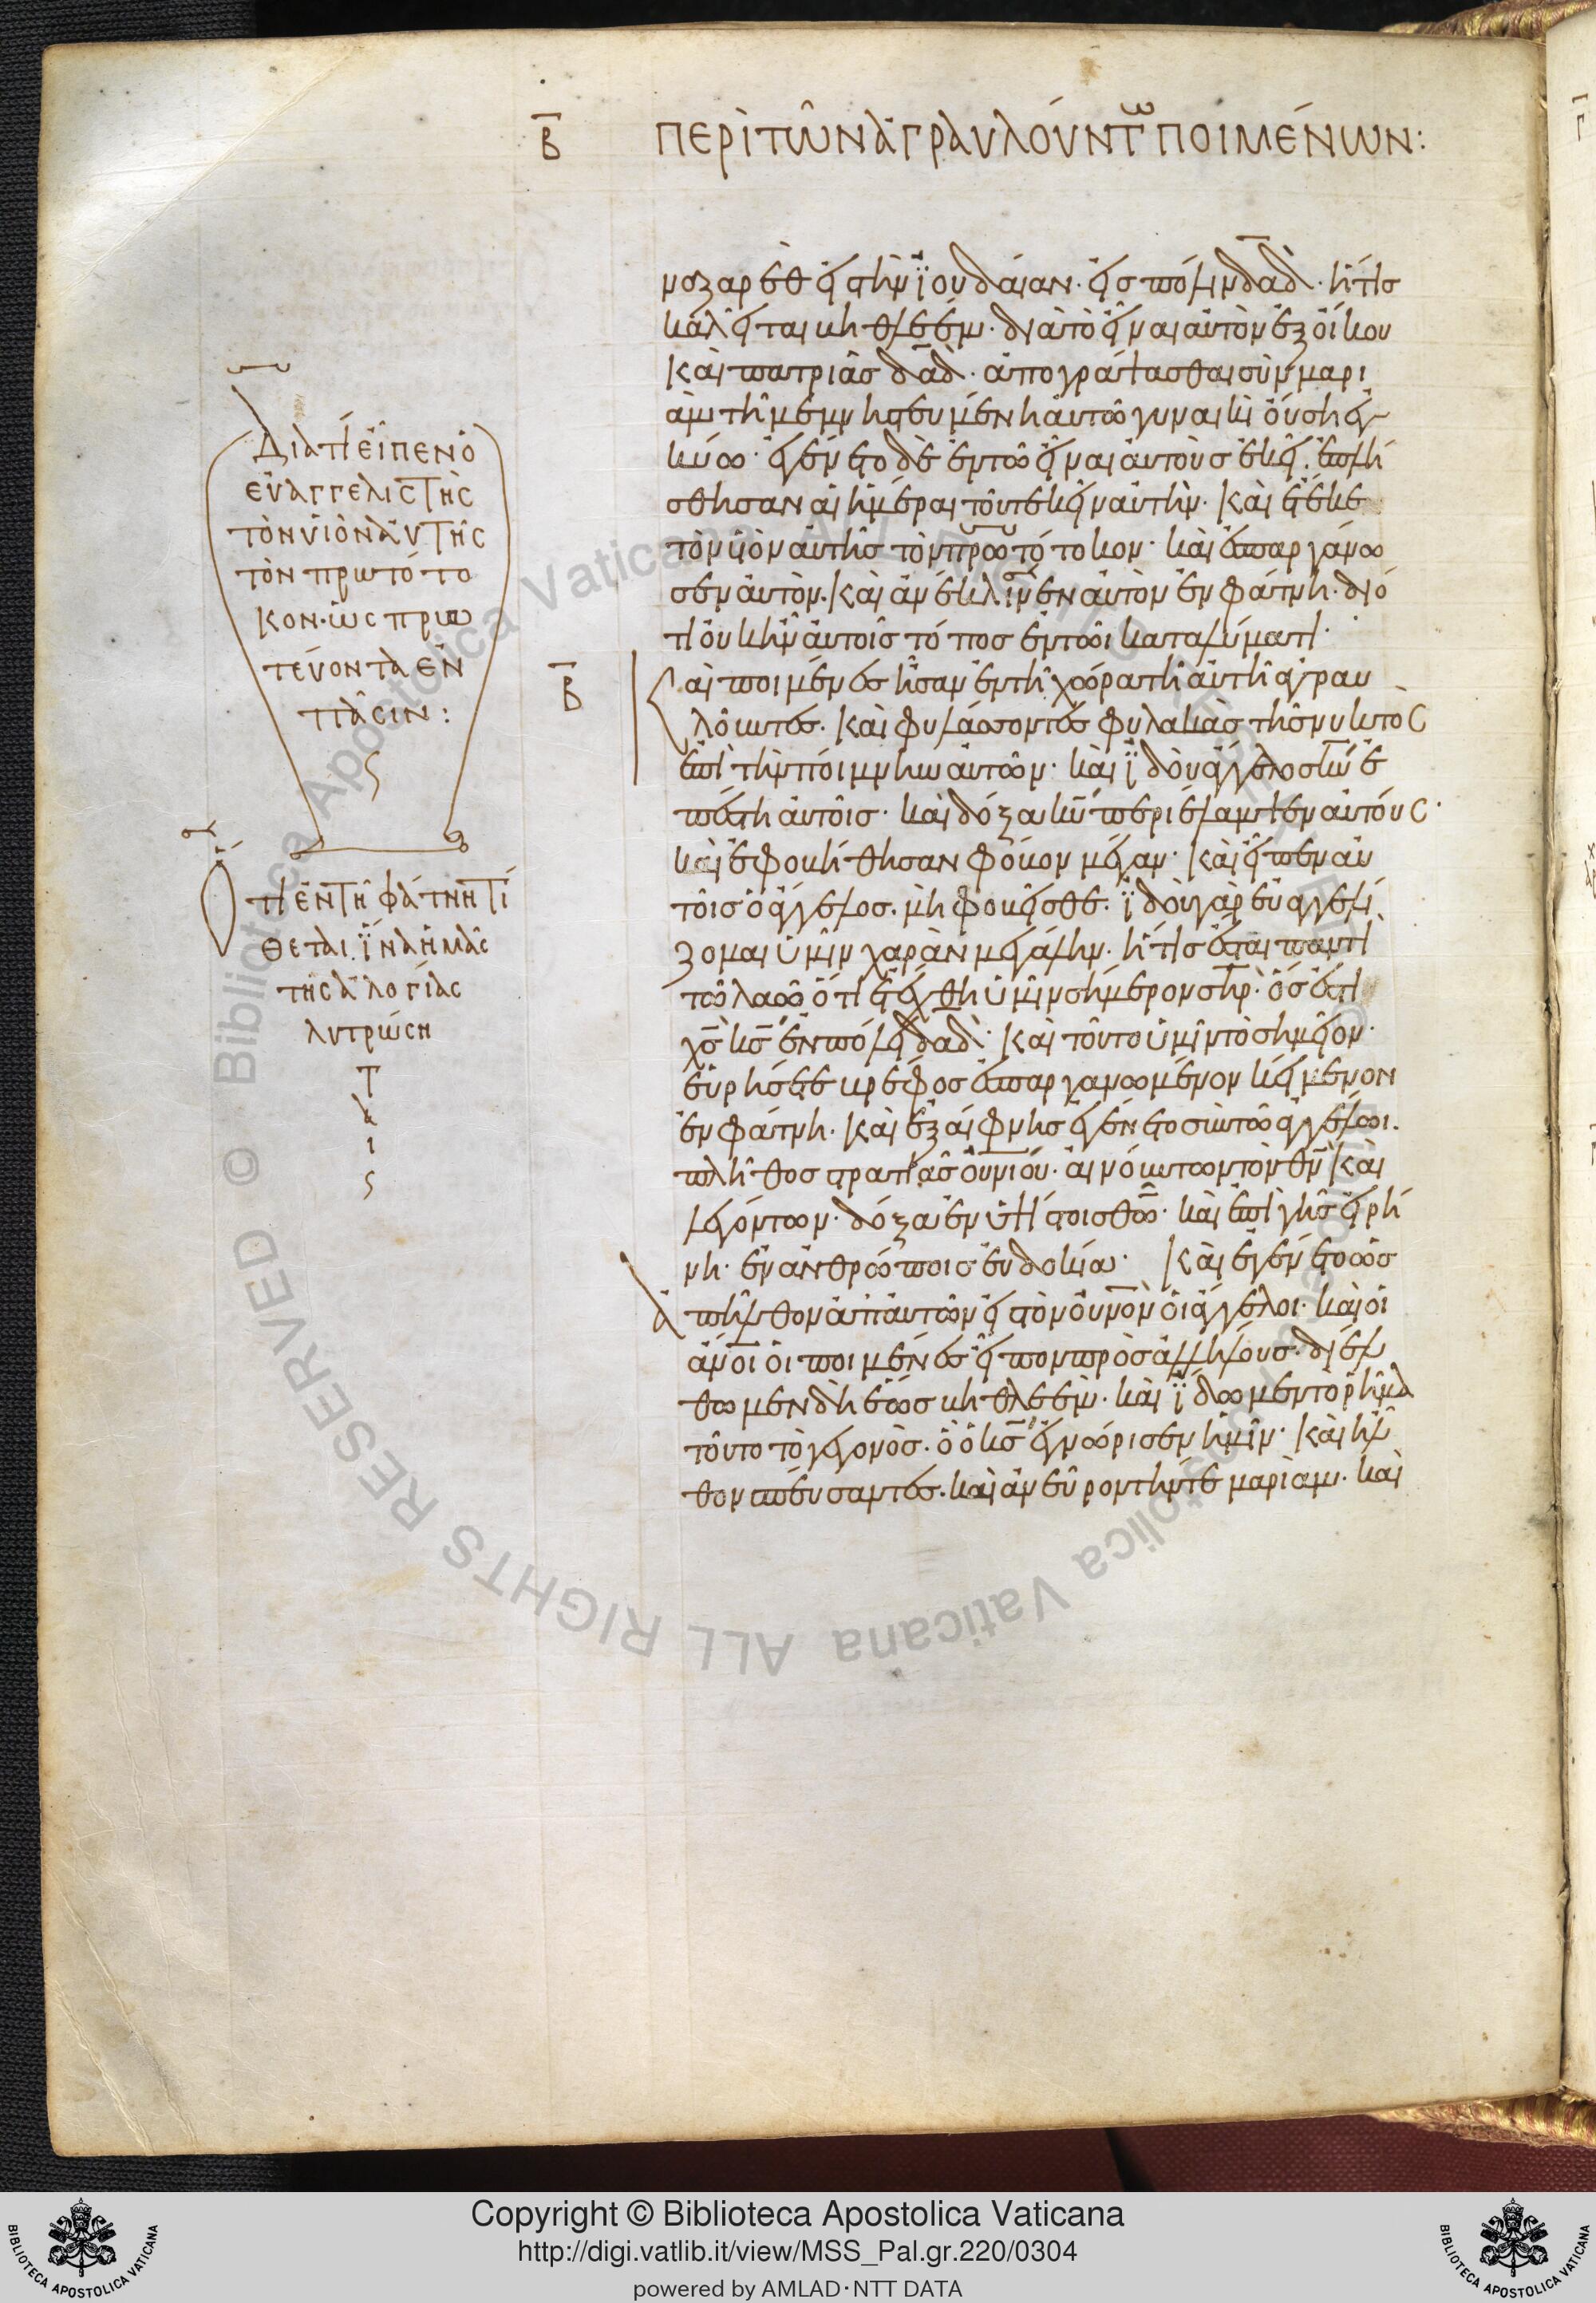 β̅ ΠΕΡῚ ΤΩ͂Ν ἈΓΡΑΥΛΟΎΝΤω ΠΟΙΜΈΝΩΝ:
ναζαρὲθ εἰς τὴν ἰουδάιαν· εἰς πόλιν δα̅δ̅· ἥτις
καλεῖται βηθλεέμ· διὰ τὸ εἶναι αὐτὸν ἐξ οἴκου
καὶ πατριᾶς δα̅δ̅· ἀπογράψασθαι σὺν μαρι
ὰμ τῆ μεμνηστευμένη αὐτῶ γυναικὶ οὔση ἐγ
κύω· ἐγένετο δὲ ἐν τῶ εἶναι αὐτοὺς ἐκεῖ· ἐπλή
σθησαν αἱ ἡμέραι τοῦ τεκεῖν αὐτὴν· καὶ ἔτεκε
τὸν υἱὸν αὐτῆς τὸν πρωτότοκον· καὶ ἐσπαργάνω
σεν αὐτὸν· καὶ ἀνέκλινεν αὐτὸν ἐν φάτνη· διό
τι οὐκ ἦν αὐτοῖς τόπος ἐν τῶι καταλύματι·
β̅ καὶ ποιμένες ἦσαν ἐν τῆ χώρα τῆ αὐτῆ ἀγραυ
λοῦντες· καὶ φυλάσσοντες φυλακὰς τῆς νυκτὸς
ἐπὶ τὴν ποίμνην αὐτῶν· καὶ ἰδοὺ ἄγγελος κ̅υ̅ ἐ
πέστη αὐτοῖς· καὶ δόξα κ̅υ̅ περιέλαμψεν αὐτούς·
καὶ ἐφοβήθησαν φόβον μέγαν· καὶ εἶπεν αὐ
τοῖς ὁ ἄγγελος· μὴ φοβεῖσθε· ἰδοὺ γὰρ εὐαγγελί
ζομαι ὑμῖν χαρὰν μεγάλην· ἥτις ἔσται παντὶ
τῶ λαῶ ὅτι ἐτέχθη ὑμῖν σήμερον σ̅η̅ρ̅· ὅς ἐστι
χ̅ς̅ κ̅ς̅ ἐν πόλει δα̅δ̅· καὶ τοῦτο ὑμῖν τὸ σημεῖον·
εὑρήσετε βρέφος ἐσπαργανωμένον κείμενον
ἐν φάτνη· καὶ ἐξαίφνης ἐγένετο σὺν τῶ ἀγγέλωι·
πλῆθος στρατιᾶς ο̅υ̅ν̅ι̅ου· αἰνούντων τὸν θ̅ν̅ καὶ
λεγόντων· δόξα ἐν ὑψίστοις θ̅ω̅· καὶ ἐπὶ γῆς εἰρή
νη· ἐν ἀνθρώποις εὐδοκία· καὶ ἐγένετο ὡς
ἀπῆλθον ἀπ' αὐτῶν εἰς τὸν ο̅υ̅ν̅ὸν οἱ ἄγγελοι· καὶ οἱ
α̅ν̅οι οἱ ποιμένες εἶπον πρὸς ἀλλήλους· διέλ
θωμεν δὴ ἕως βηθλεέμ· καὶ ἴδωμεν τὸ ῥῆμα
τοῦτο τὸ γεγονὸς· ὃ ὁ κ̅ς̅ ἐγνώρισεν ἡμῖν· καὶ ἦλ
θον σπεύσαντες· καὶ ἀνεῦρον τήν τε μαριὰμ· καὶ
ΔΙΑΤΊ ΕἾΠΕΝ Ὁ
ΕΥ̓ΑΓΓΕΛΙΣΤῊΣ
ΤῸΝ ΥἹῸΝ ΑΥ̓ΤΗ͂Σ
ΤῸΝ ΠΡΩΤΌΤΟ
ΚΟΝ· ὩΣ ΠΡΩ
ΤΕΎΟΝΤΑ ἘΝ
ΠΑ͂ΣΙΝ:
ὍΤΙ ἘΝ ΤΗ͂ ΦΆΤΝΗ ΤΊ
ΘΕΤΑΙ· ἽΝΑ ἩΜΑ͂Σ
ΤΗ͂Σ ἈΛΟΓΊΑΣ
ΛΥΤΡΏΣΗ
ΤΑΙ
Copyright © Biblioteca Apostolica Vaticana
http://digi.vatlib.it/view/MSS_Pal.gr.220/0304
powered by AMLAD·NTT DATA
BIBLIOTECA APOSTOLICA VATICANA
BIBLIOTECA APOSTOLICA VATICANA
© Biblioteca Apostolica Vaticana ALL RIGHTS RESERVED